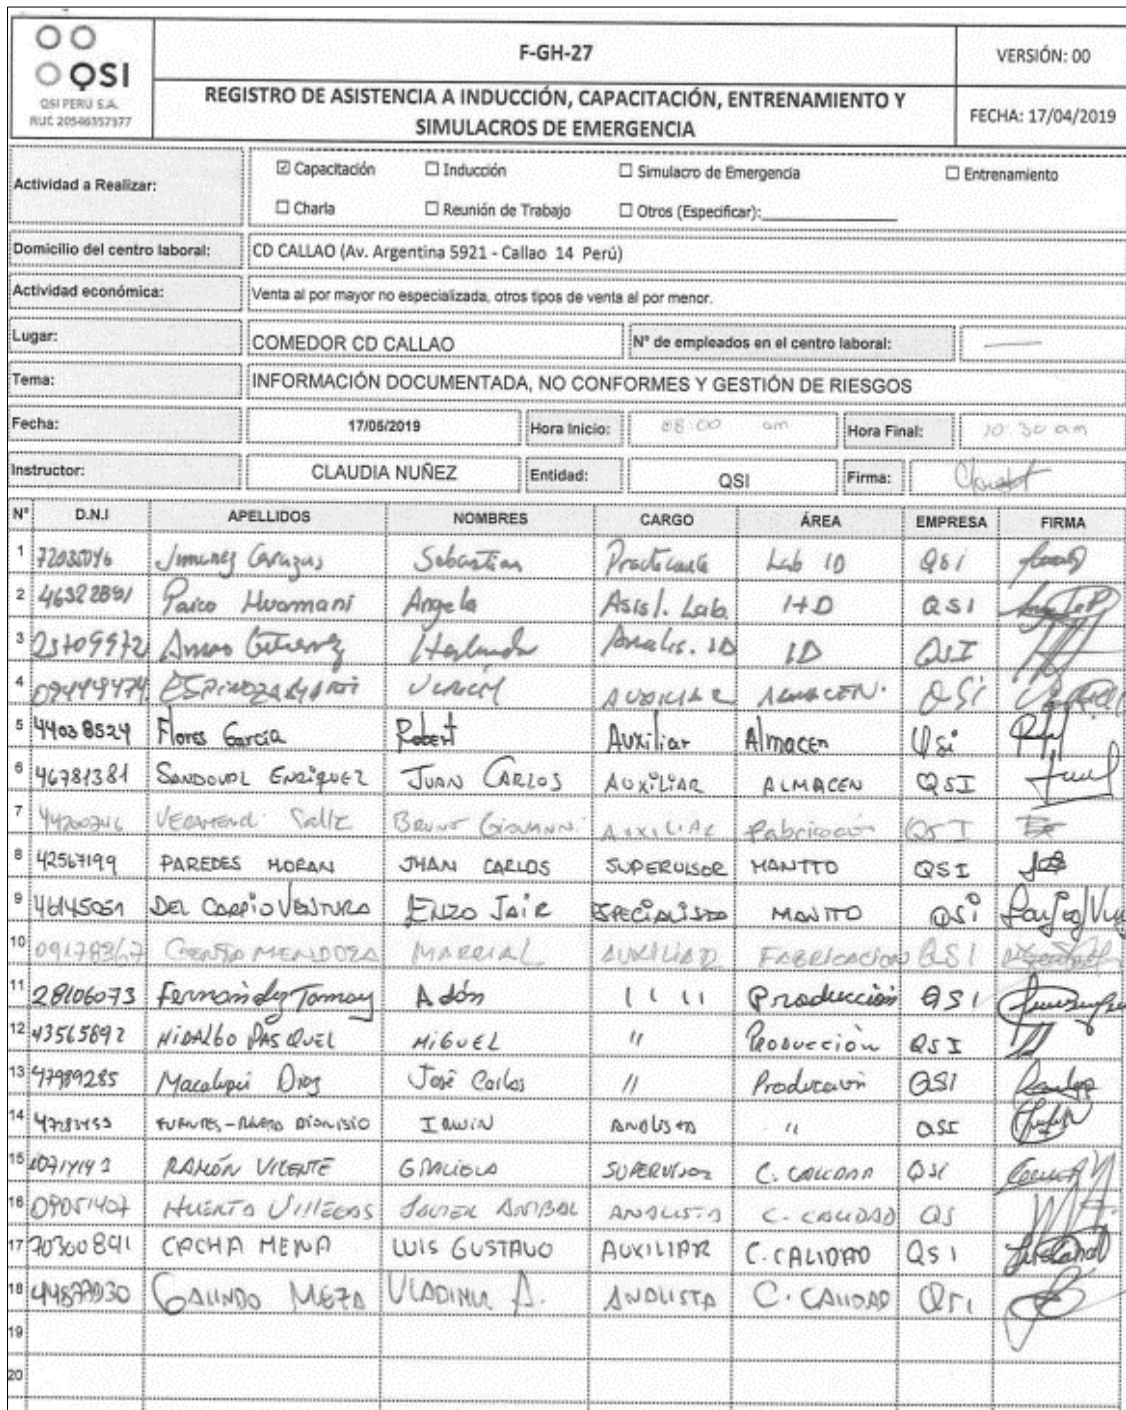 QSI
QSI PERÚ S.A.
RUC 20546357377
F-GH-27
VERSIÓN: 00
REGISTRO DE ASISTENCIA A INDUCCIÓN, CAPACITACIÓN, ENTRENAMIENTO Y
SIMULACROS DE EMERGENCIA
FECHA: 17/04/2019
Actividad a Realizar:
☑ Capacitación ☐ Inducción ☐ Simulacro de Emergencia ☐ Entrenamiento
☐ Charla ☐ Reunión de Trabajo ☐ Otros (Especificar):
Domicilio del centro laboral: CD CALLAO (Av. Argentina 5921 - Callao 14 Perú)
Actividad económica: Venta al por mayor no especializada, otros tipos de venta al por menor.
Lugar: COMEDOR CD CALLAO N° de empleados en el centro laboral: —
Tema: INFORMACIÓN DOCUMENTADA, NO CONFORMES Y GESTIÓN DE RIESGOS
Fecha: 17/05/2019 Hora Inicio: 08:00 am Hora Final: 10:30 am
Instructor: CLAUDIA NUÑEZ Entidad: QSI Firma:
N° D.N.I APELLIDOS NOMBRES CARGO ÁREA EMPRESA FIRMA
1 Sebastian Practicante Lab ID QSI
2 Paico Huamani Angela Asist. Lab. I+D QSI
3 Analis. ID ID QSI
4 AUXILIAR ALMACEN. QSI
5 44038524 Flores Garcia Robert Auxiliar Almacen Qsi
6 46781381 SANDOVAL ENRIQUEZ JUAN CARLOS AUXILIAR ALMACEN QSI
7 AUXILIAR Fabricación QSI
8 42567199 PAREDES MORAN JHAN CARLOS SUPERVISOR MANTTO QSI
9 46145051 DEL CARPIO VENTURA ENZO JAIR ESPECIALISTA MANTTO QSI
10 MENDOZA MARCIAL AUXILIAR FABRICACION QSI
11 28106073 Adón ı ı ı ı Producción QSI
12 43565892 HIDALGO PASQUEL MIGUEL " Producción QSI
13 47989285 José Carlos // Producción QSI
14 DIONISIO IRWIN ANALISTA " QSI
15 RAMÓN VICENTE GRACIELA SUPERVISOR C. CALIDAD QSI
16 09051407 HUERTA VILLEGAS JAVIER ANIBAL ANALISTA C. CALIDAD QS
17 70300891 CACHA MENA LUIS GUSTAVO AUXILIAR C. CALIDAD QSI
18 GALINDO MEZA VLADIMIR A. ANALISTA C. CALIDAD QSI
19
20